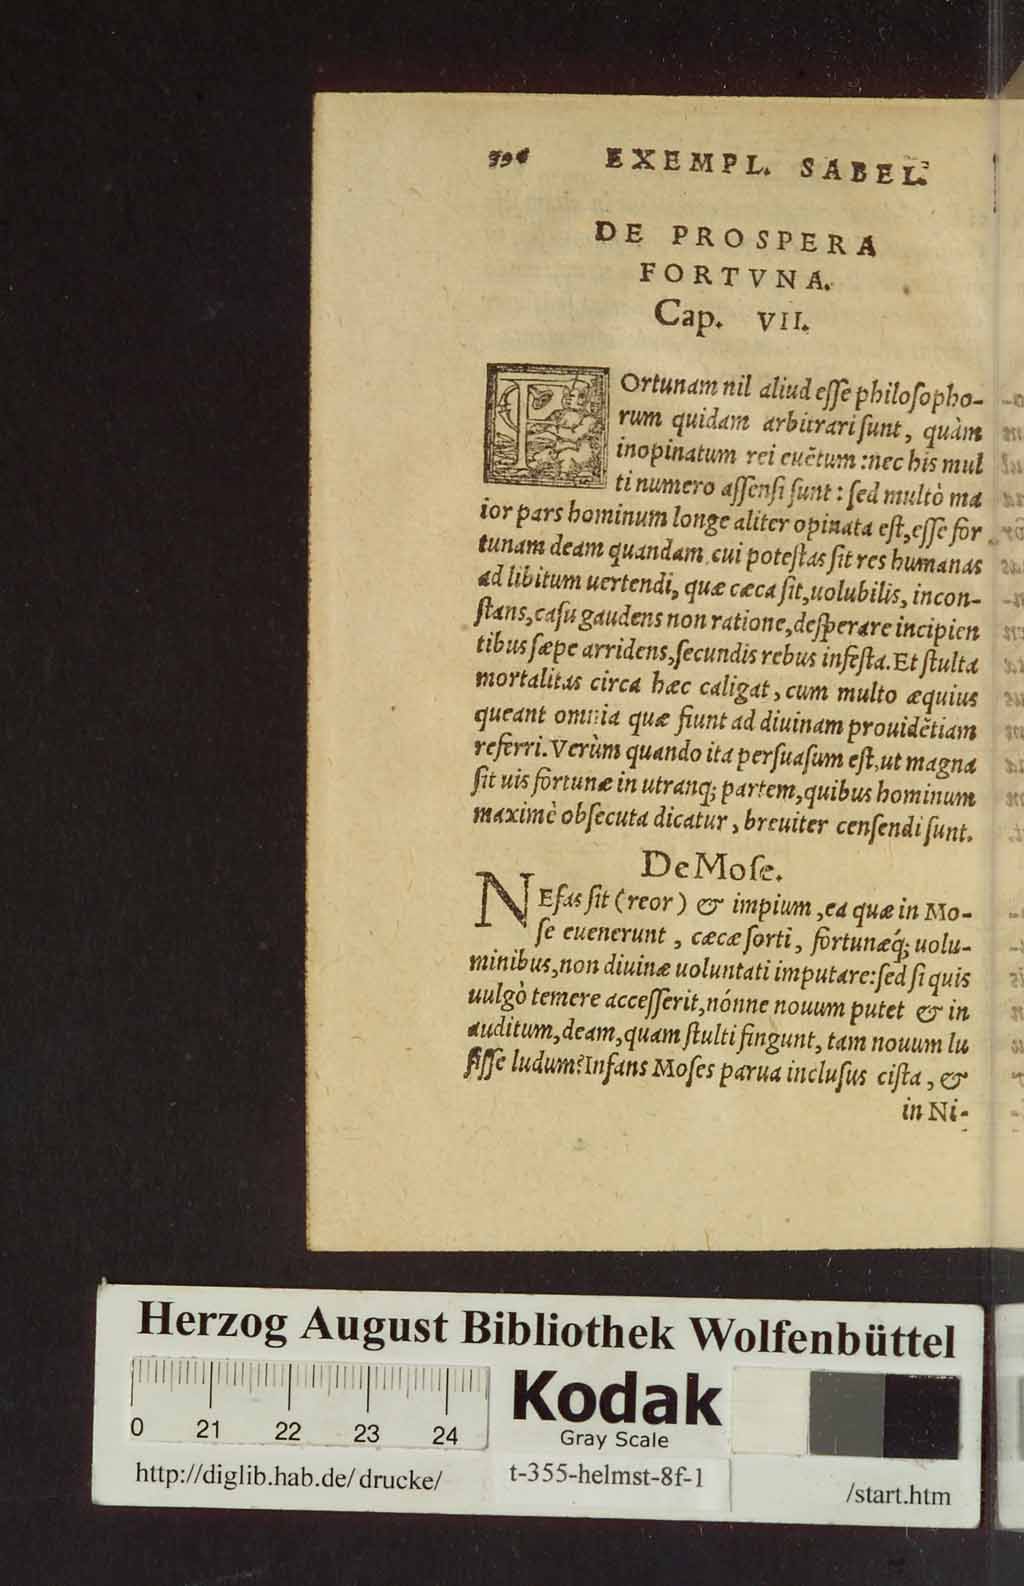 EXEMPL. SABEL.
DE PROSPERA
FORTVNA.
Cap. VII.
FOrtunam nil aliud eſſe philoſopho-
rum quidam arbitrari ſunt, quàm
inopinatum rei euētum: nec his mul
ti numero aſſenſi ſunt: ſed multò ma
ior pars hominum longe aliter opinata eſt, eſſe for
tunam deam quandam, cui poteſtas ſit res humanas
ad libitum uertendi, quæ cæca ſit, uolubilis, incon-
ſtans, caſu gaudens non ratione, deſperare incipien
tibus ſæpe arridens, ſecundis rebus infeſta. Et ſtulta
mortalitas circa hæc caligat, cum multo æquius
queant omnia quæ fiunt ad diuinam prouidētiam
referri. Verùm quando ita perſuaſum eſt, ut magna
ſit uis fortunæ in utranq; partem, quibus hominum
maximè obſecuta dicatur, breuiter cenſendi ſunt.
De Moſe.
NEfas ſit (reor) & impium, ea quæ in Mo-
ſe euenerunt, cæcæ ſorti, fortunæq́; uolu-
minibus, non diuinæ uoluntati imputare: ſed ſi quis
uulgò temere acceſſerit, nónne nouum putet & in
auditum, deam, quam ſtulti fingunt, tam nouum lu
ſiſſe ludum? Infans Moſes parua incluſus ciſta, &
in Ni-
Herzog August Bibliothek Wolfenbüttel
0 21 22 23 24
Kodak
Gray Scale
http://diglib.hab.de/drucke/
t-355-helmst-8f-1
/start.htm